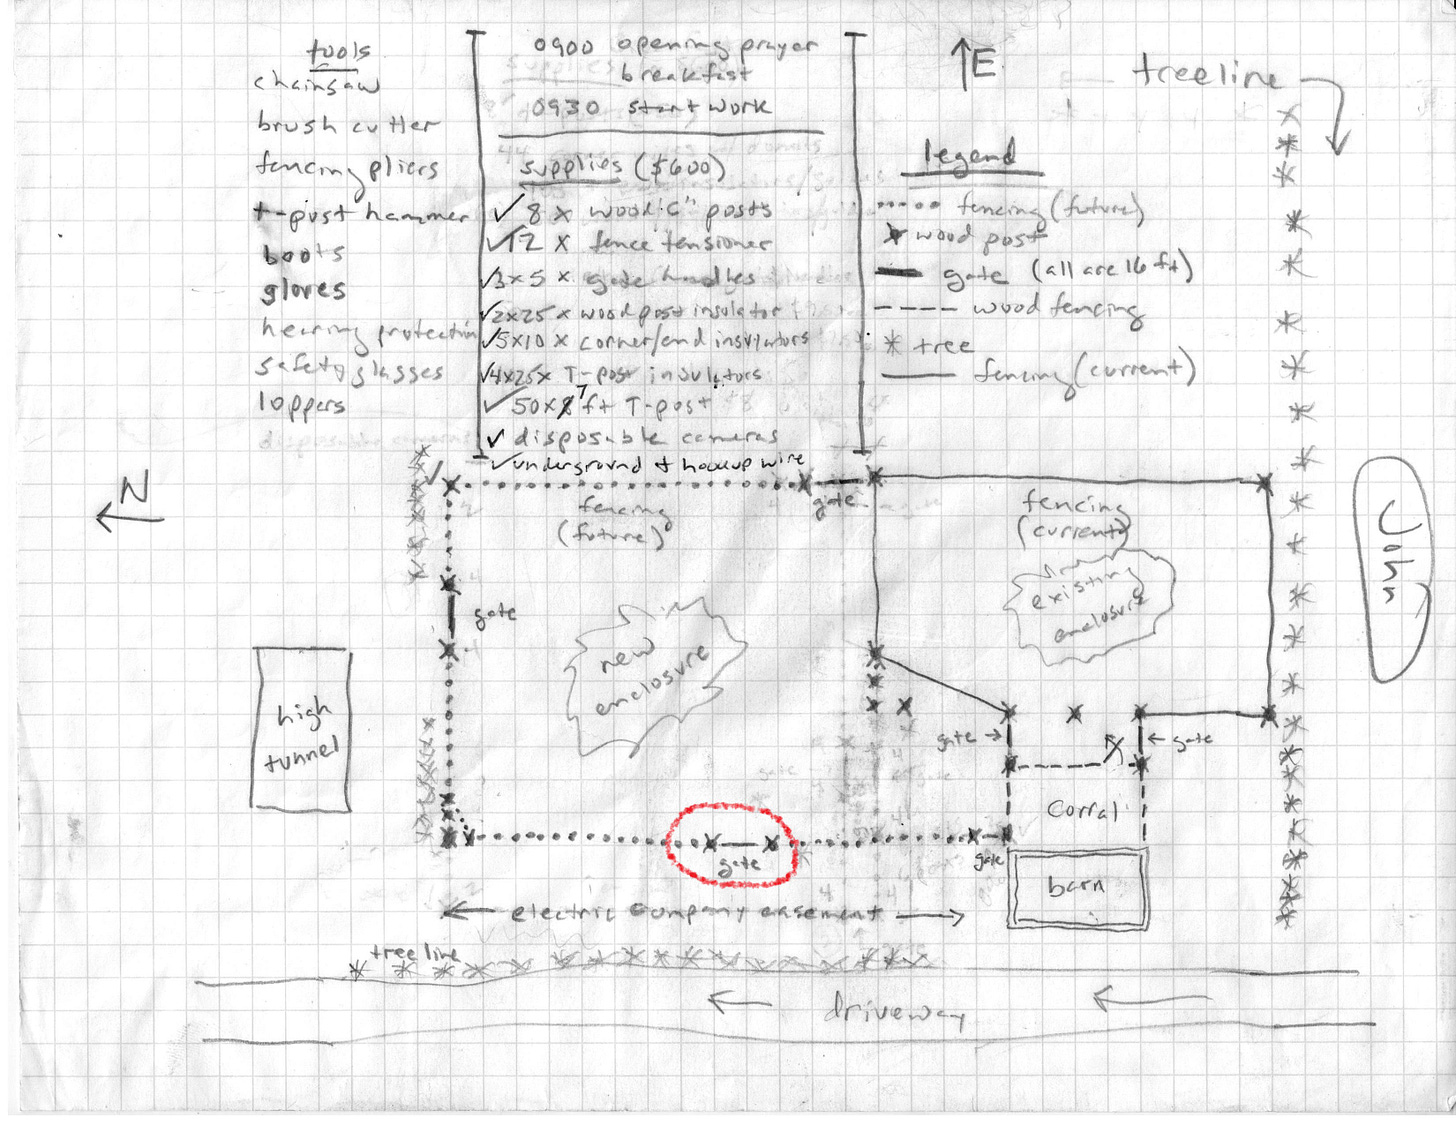 tools
chainsaw
brush cutter
fencing pliers
t-post hammer
boots
gloves
hearing protection
safety glasses
loppers
0900 opening prayer
breakfast
0930 start work
supplies ($600)
✓ 8 x wood 6" posts
✓ 12 x fence tensioner
✓ 3x5 x gate handles
✓ 2x25 x wood post insulator
✓ 5x10 x corner/end insulators
✓ 4x25x T-post insulators
✓ 50 x 7 ft T-post
✓ disposable cameras
✓ underground + hookup wire
↑ E
treeline
legend
fencing (future)
wood post
gate (all are 16 ft)
wood fencing
tree
fencing (current)
N
John
gate
fencing
(future)
fencing
(current)
existing
enclosure
gate
new
enclosure
high
tunnel
gate →
← gate
corral
gate
gate
barn
← electric company easement →
tree line
← driveway ←